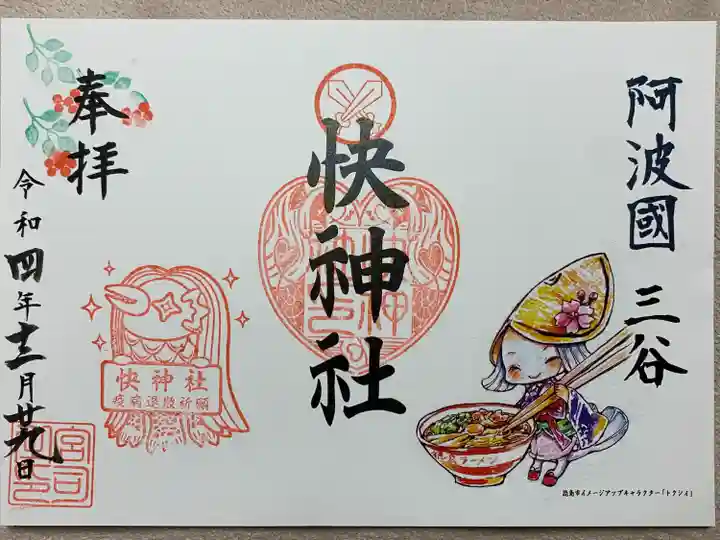 阿波國 三谷
快神社
奉拝
令和四年十二月廿九日
快神社
疫病退散祈願
ラーメン
徳島市イメージアップキャラクター「トクシィ」